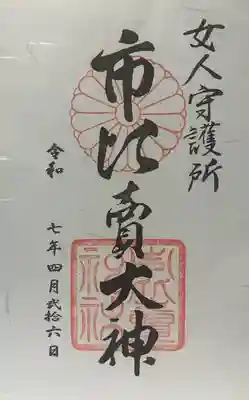 女人守護所
市比賣大神
令和 七年四月弐拾六日